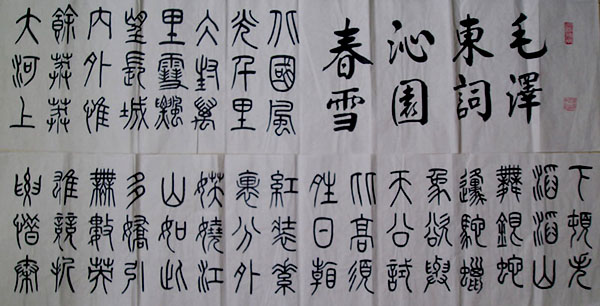 毛澤
東詞
沁園
春雪
北國風
光千里
冰封萬
里雪飄
望長城
内外惟
餘莽莽
大河上
下頓失
滔滔山
舞銀蛇
原馳蠟
象欲與
天公試
比高須
晴日看
紅裝素
裹分外
妖嬈江
山如此
多嬌引
無數英
雄競折
腰惜秦